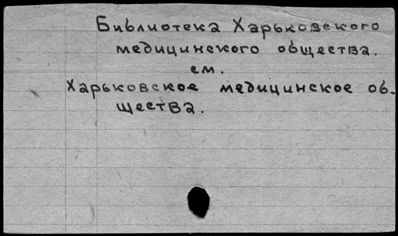 Библиотека Харьковского
медицинского общества.
см.
Харьковское медицинское об-
щества.